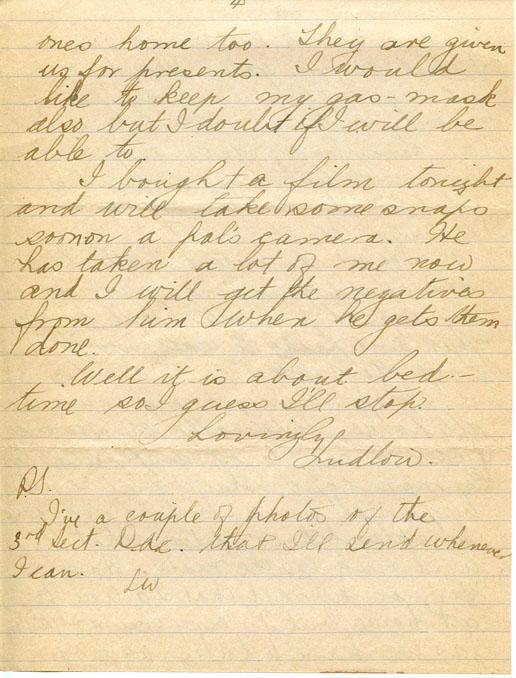 4
ones home too. They are given
us for presents. I would
like to keep my gas-mask
also but I doubt if I will be
able to
I bought a film tonight
and will take some snaps
soon on a pal's camera. He
has taken a lot of me now
and I will get the negatives
from him when he gets them
done.
Well it is about bed-
time so I guess I'll stop.
Lovingly
Ludlow.
P.S.
I've a couple of photos of the
3rd Sect. D.A.C. that I'll send whenever
I can.
LW